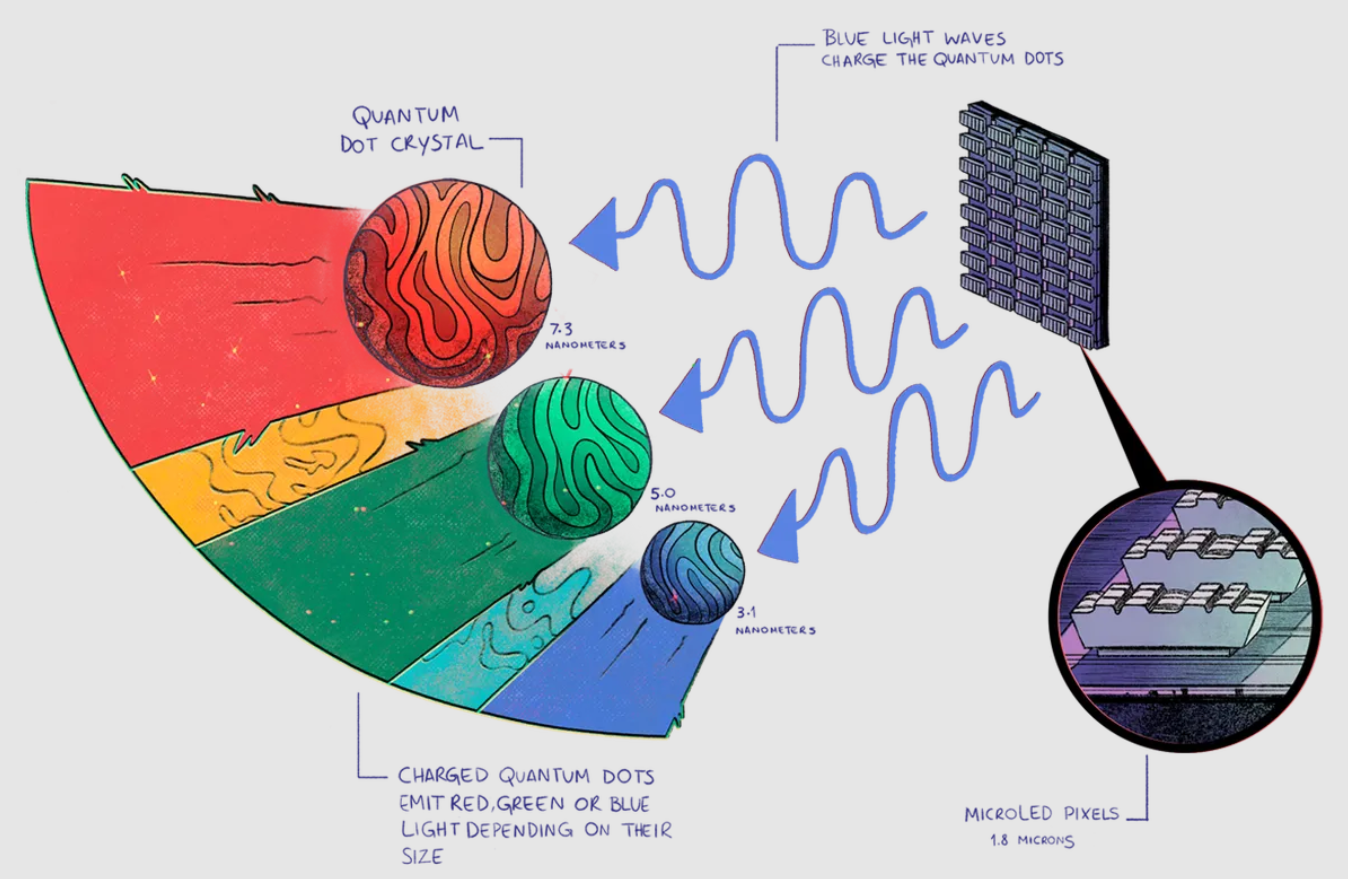 BLUE LIGHT WAVES
CHARGE THE QUANTUM DOTS
QUANTUM
DOT CRYSTAL
7.3
NANOMETERS
5.0
NANOMETERS
3.1
NANOMETERS
CHARGED QUANTUM DOTS
EMIT RED, GREEN OR BLUE
LIGHT DEPENDING ON THEIR
SIZE
MICROLED PIXELS
1.8 MICRONS